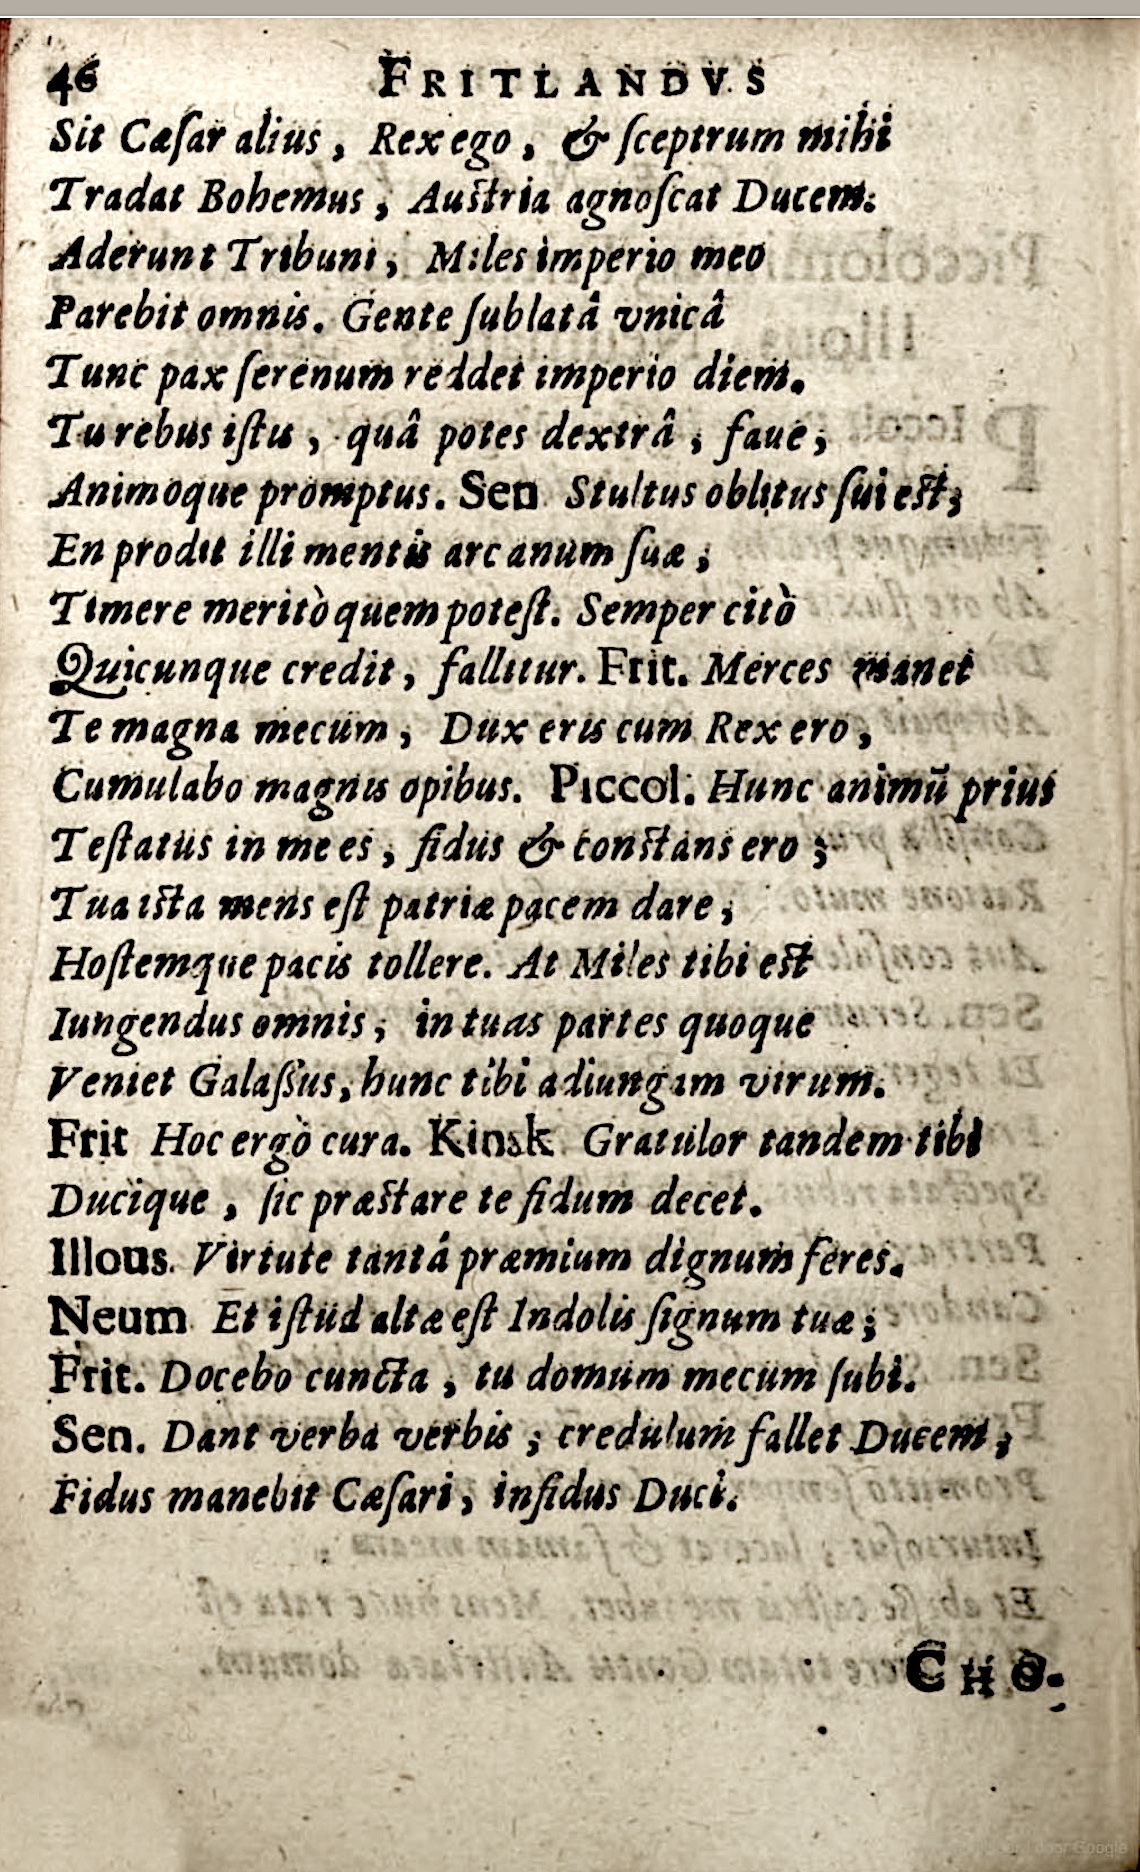 46 FRITLANDVS
Sit Cæſar alius, Rex ego, & ſceptrum mihi
Tradat Bohemus, Auſtria agnoſcat Ducem.
Aderunt Tribuni, Miles imperio meo
Parebit omnis. Gente ſublatâ vnicâ
Tunc pax ſerenum reddet imperio diem.
Tu rebus iſtis, quâ potes dextrâ, faue,
Animoque promptus. Sen Stultus oblitus ſui eſt;
En prodit illi mentis arcanum ſuæ,
Timere meritò quem poteſt. Semper citò
Quicunque credit, fallitur. Frit. Merces manet
Te magna mecum, Dux eris cum Rex ero,
Cumulabo magnis opibus. Piccol. Hunc animū prius
Teſtatus in me es, fidus & conſtans ero;
Tua iſta mens eſt patriæ pacem dare,
Hoſtemque pacis tollere. At Miles tibi eſt
Iungendus omnis, in tuas partes quoque
Veniet Galaſſus, hunc tibi adiungam virum.
Frit Hoc ergò cura. Kinsk Gratulor tandem tibi
Ducique, ſic præſtare te fidum decet.
Illous. Virtute tantâ præmium dignum feres.
Neum Et iſtud altæ eſt Indolis ſignum tuæ;
Frit. Docebo cuncta, tu domum mecum ſubi.
Sen. Dant verba verbis; credulum fallet Ducem,
Fidus manebit Cæſari, infidus Duci.
CHO.